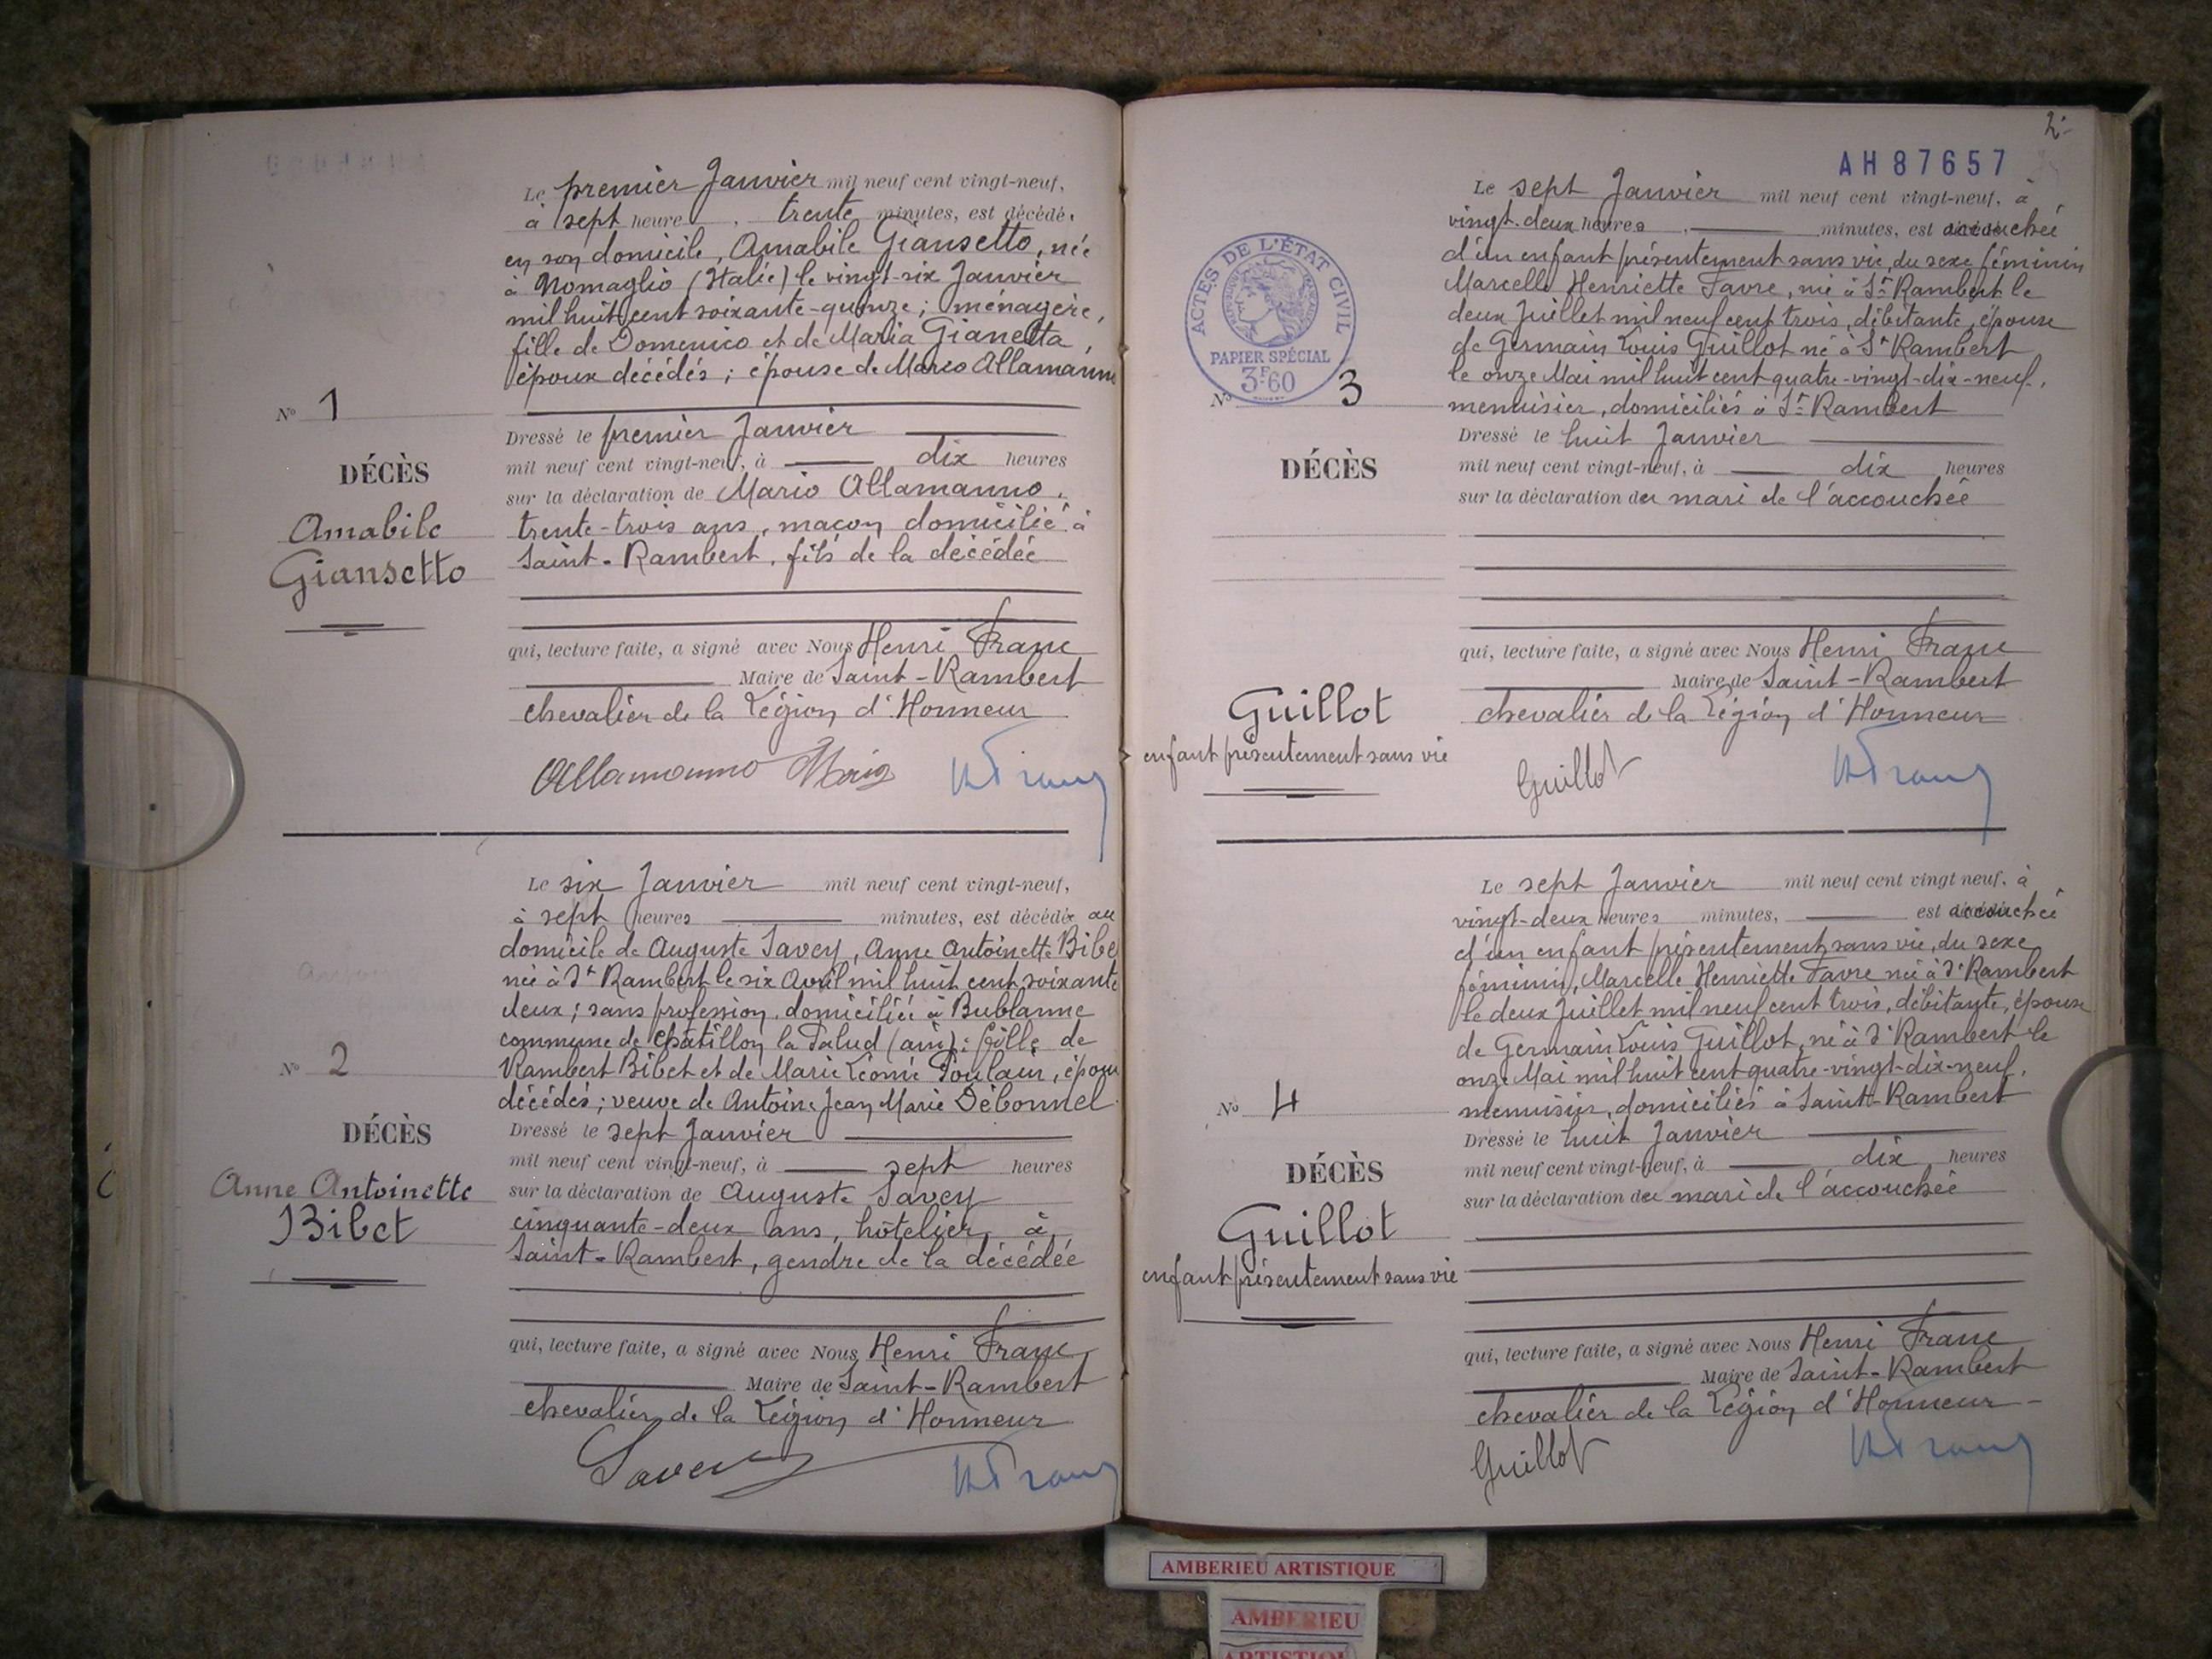 Le premier Janvier mil neuf cent vingt-neuf,
à sept heure trente minutes, est décédé
en son domicile, Amabile Giansetto, née
à Nomaglio (Italie) le vingt-six Janvier
mil huit cent soixante-quinze ; ménagère,
fille de Domenico et de Maria Gianetta,
époux décédés ; épouse de Marco Allamanno
N° 1
DÉCÈS
Amabile
Giansetto
Dressé le premier Janvier
mil neuf cent vingt-neuf, à dix heures
sur la déclaration de Mario Allamanno,
trente-trois ans, maçon domicilié à
Saint-Rambert, fils de la décédée
qui, lecture faite, a signé avec Nous Henri Franc
Maire de Saint-Rambert
chevalier de la Légion d'Honneur
Allamanno Mario
HFranc
Le six Janvier mil neuf cent vingt-neuf,
à sept heures minutes, est décédée au
domicile de Auguste Savey, Anne Antoinette Bibe
née à St Rambert le six Avril mil huit cent soixante
deux ; sans profession, domiciliée à Bublanne
commune de Châtillon la Palud (ain) ; fille de
Rambert Bibet et de Marie Léonie Poulain, époux
décédés ; veuve de Antoine Jean Marie Débonnel
N° 2
DÉCÈS
Anne Antoinette
Bibet
Dressé le sept Janvier
mil neuf cent vingt-neuf, à sept heures
sur la déclaration de Auguste Savey
cinquante-deux ans, hôtelier, à
Saint-Rambert, gendre de la décédée
qui, lecture faite, a signé avec Nous Henri Franc
Maire de Saint-Rambert
chevalier de la Légion d'Honneur
Savey
HFranc
2
AH87657
ACTES DE L'ÉTAT CIVIL
PAPIER SPÉCIAL
3F60
Le sept Janvier mil neuf cent vingt-neuf, à
vingt-deux heures minutes, est accouchée
d'un enfant présentement sans vie, du sexe féminin
Marcelle Henriette Favre, née à St Rambert le
deux Juillet mil neuf cent trois, débitante, épouse
de Germain Louis Guillot né à St Rambert
le onze Mai mil huit cent quatre-vingt-dix-neuf,
menuisier, domiciliés à St Rambert
N° 3
DÉCÈS
Guillot
enfant présentement sans vie
Dressé le huit Janvier
mil neuf cent vingt-neuf, à dix heures
sur la déclaration du mari de l'accouchée
qui, lecture faite, a signé avec Nous Henri Franc
Maire de Saint-Rambert
chevalier de la Légion d'Honneur
Guillot
HFranc
Le sept Janvier mil neuf cent vingt neuf, à
vingt-deux heures minutes, est accouchée
d'un enfant présentement sans vie, du sexe
féminin, Marcelle Henriette Favre née à St Rambert
le deux Juillet mil neuf cent trois, débitante, épouse
de Germain Louis Guillot, né à St Rambert le
onze Mai mil huit cent quatre-vingt-dix-neuf,
menuisier, domiciliés à Saint-Rambert
N° 4
DÉCÈS
Guillot
enfant présentement sans vie
Dressé le huit Janvier
mil neuf cent vingt-neuf, à dix heures
sur la déclaration du mari de l'accouchée
qui, lecture faite, a signé avec Nous Henri Franc
Maire de Saint-Rambert
chevalier de la Légion d'Honneur
Guillot
HFranc
AMBERIEU ARTISTIQUE
AMBERIEU
ARTISTIQUE